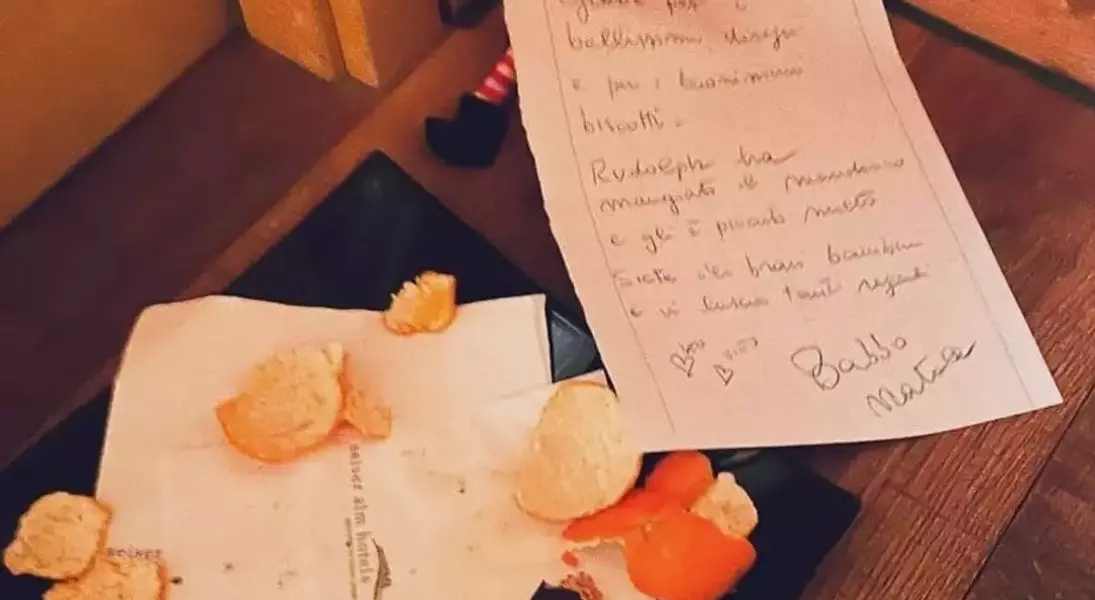 per i
bellissimi disegni
e per i buonissimi
biscotti.
Rudolph ha
mangiato il mandarino
e gli è piaciuto molto
Siete dei bravi bambini
e vi lascio tanti regali
Babbo
Natale
seiser alm hotels
seiser